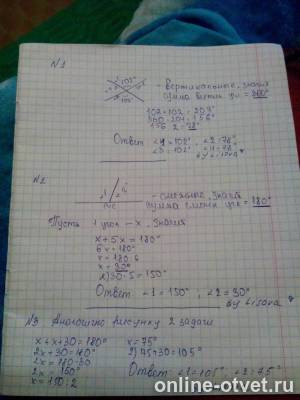 N1
102°
102°
- вертикальные, значит
сумма вертик. углов = 360°
102+102=204°
360-204=156°
156:2=78°
Ответ ∠1=102°, ∠2=78°
∠3=102°, ∠4=78°
by Lisova
N2
1 2
Рис
- смежные, значит
сумма смежн. угл = 180°
Пусть 1 угол - x, значит
x+5x=180°
6x=180°
x=180:6
x=30°
2) 30·5=150°
Ответ ∠1=150°, ∠2=30°
by Lisova
N3 Аналогично рисунку 2 задачи
x+x+30=180°
2x+30=180°
2x=180-30
2x=150°
x=150:2
x=75°
2) 75+30=105°
Ответ: ∠1=105°, ∠2=75°
online-otvet.ru